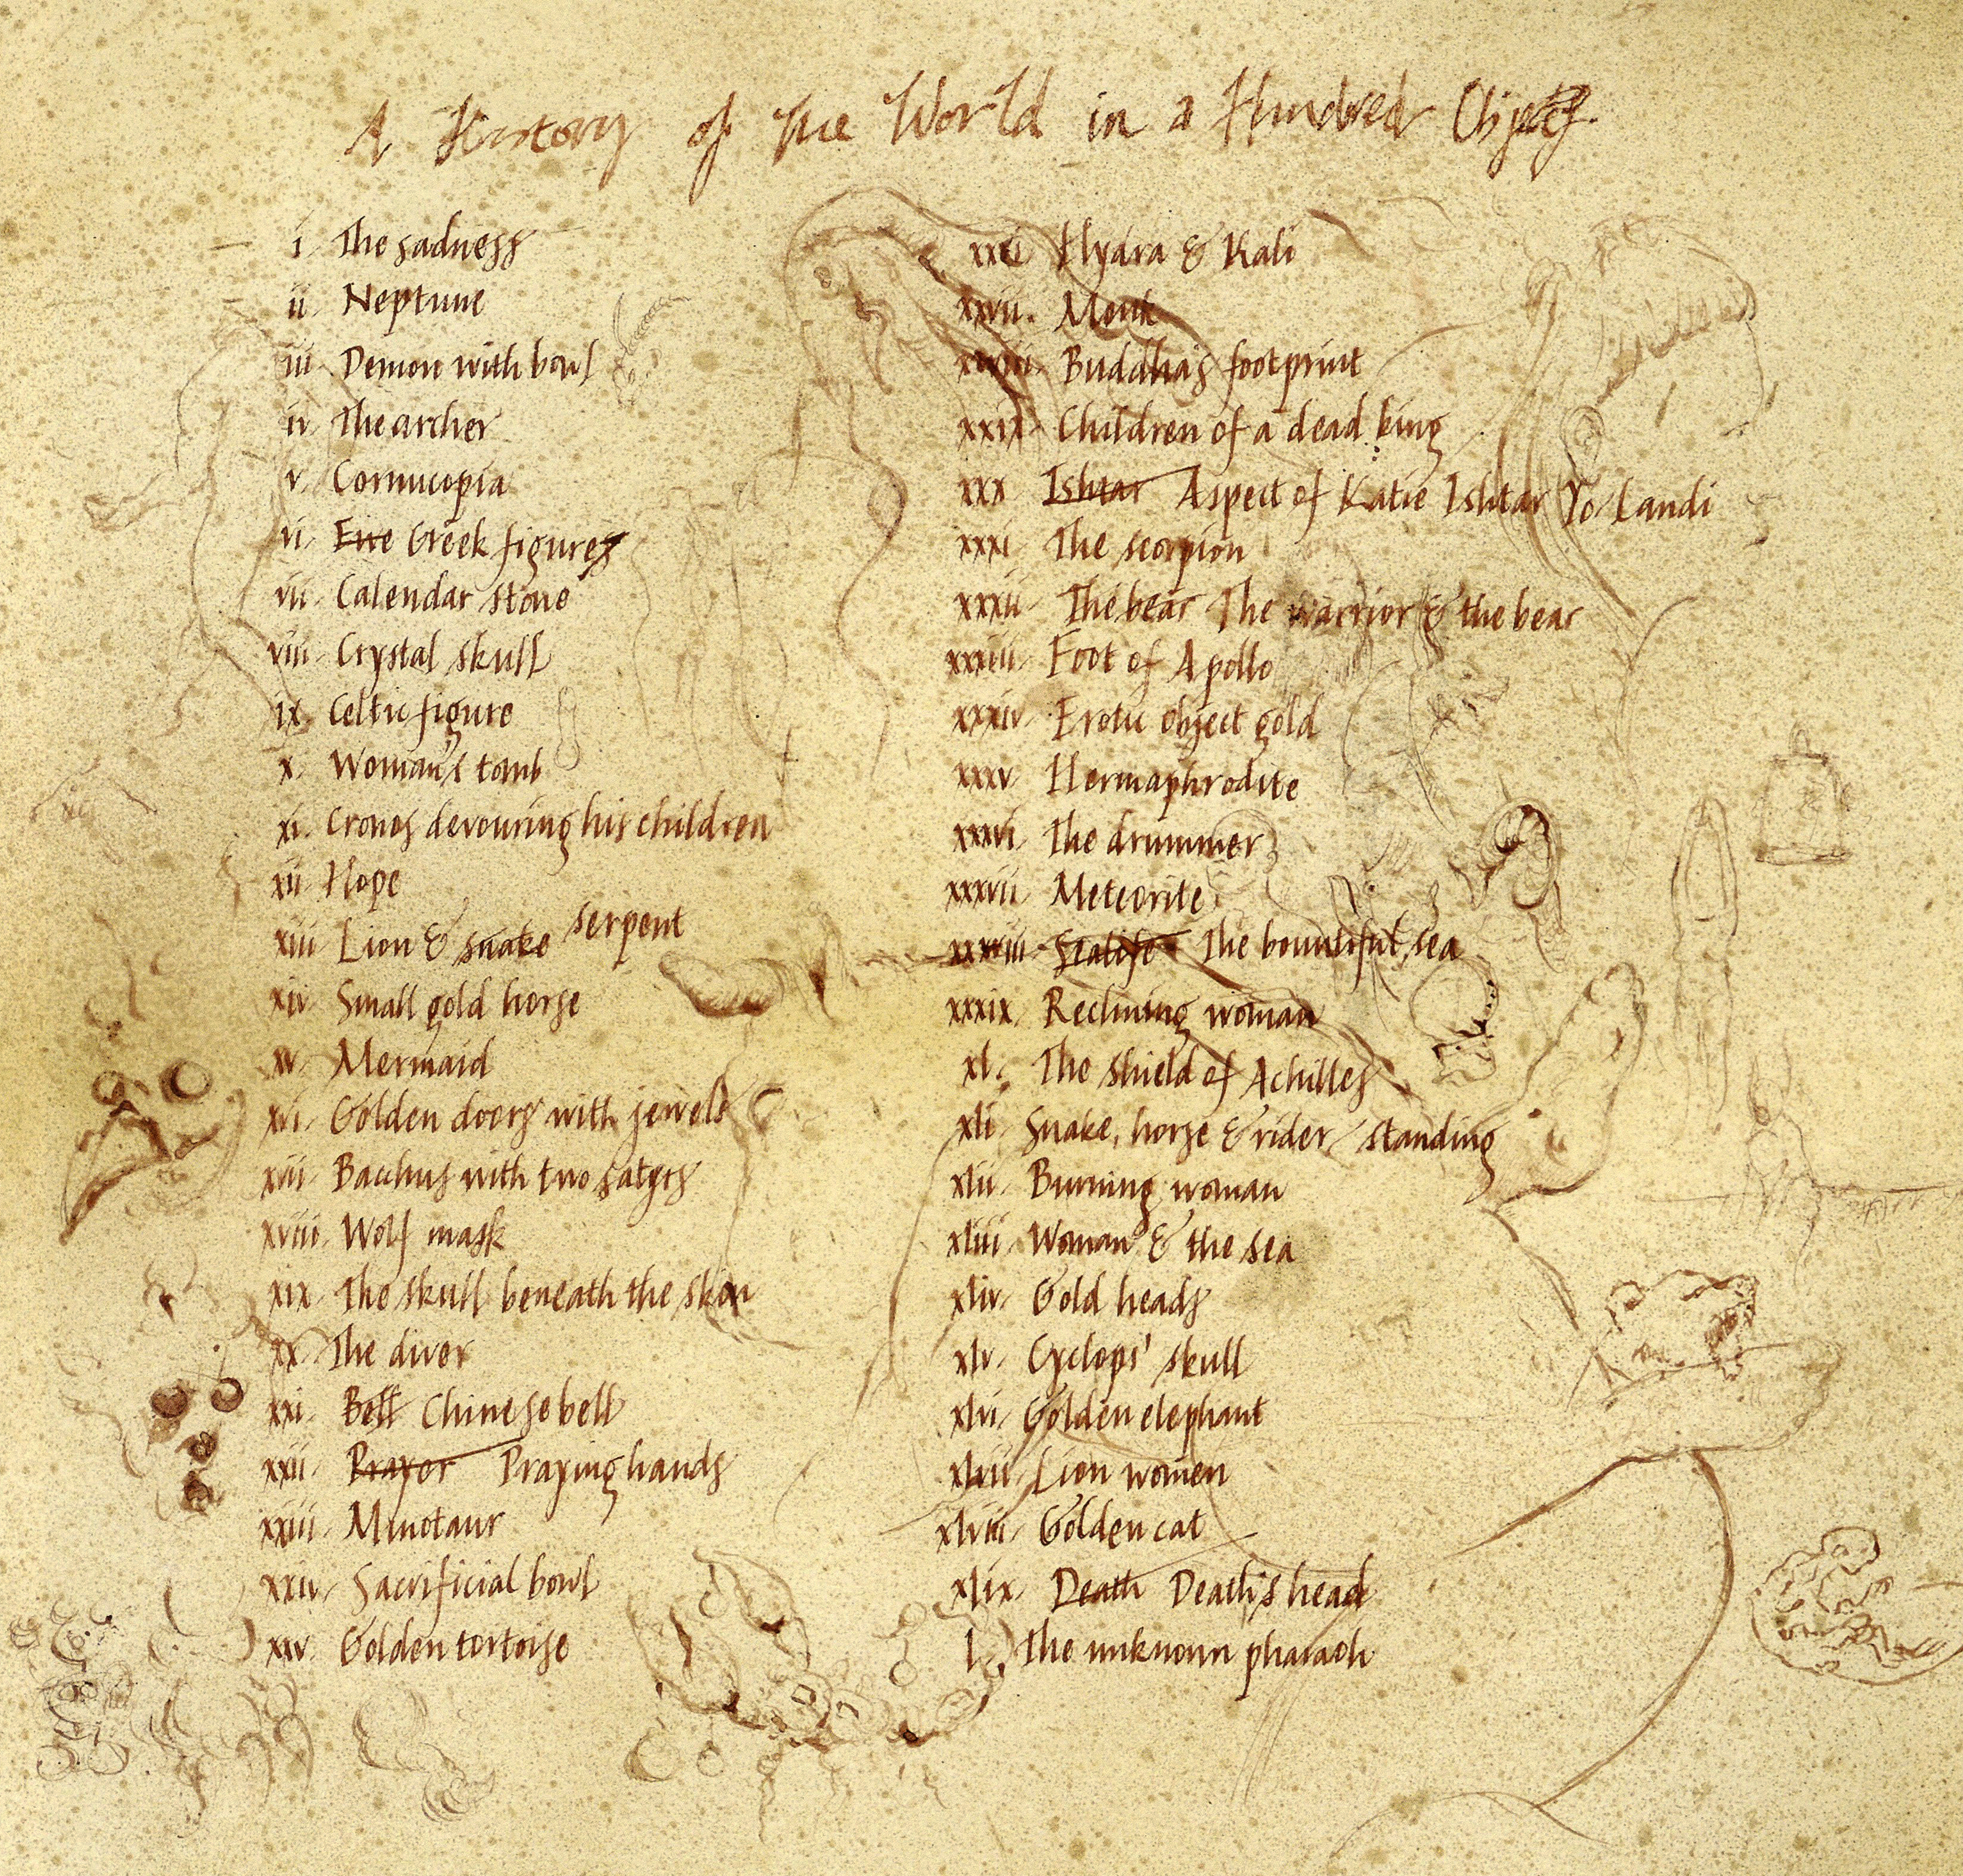 A History of the World in a Hundred Objects.
i. The sadness
ii. Neptune
iii. Demon with bowl
iv. The archer
v. Cornucopia
vi. Five Greek figures
vii. Calendar stone
viii. Crystal skull
ix. Celtic figure
x. Woman's tomb
xi. Cronos devouring his children
xii Hope
xiii Lion & snake serpent
xiv. Small gold horse
xv. Mermaid
xvi. Golden doors with jewels
xvii. Bacchus with two satyrs
xviii. Wolf mask
xix. The skull beneath the skin
xx. The diver
xxi. Bell Chinese bell
xxii. Prayer Praying hands
xxiii. Minotaur
xxiv. Sacrificial bowl
xxv. Golden tortoise
xxvi Hydra & Kali
xxvii. Monk
xxviii. Buddha's footprint
xxix. Children of a dead king
xxx Ishtar Aspect of Katie Ishtar Yo-Landi
xxxi The scorpion
xxxii. The bear The warrior & the bear
xxxiii. Foot of Apollo
xxxiv. Erotic object gold
xxxv. Hermaphrodite
xxxvi. The drummer
xxxvii. Meteorite
xxxviii. Sealife The bountiful sea
xxxix. Reclining woman
xl. The shield of Achilles
xli. Snake, horse & rider / standing
xlii. Burning woman
xliii. Woman & the sea
xliv. Gold heads
xlv. Cyclops' skull
xlvi. Golden elephant
xlvii. Lion women
xlviii. Golden cat
xlix. Death Death's head
l. The unknown pharaoh